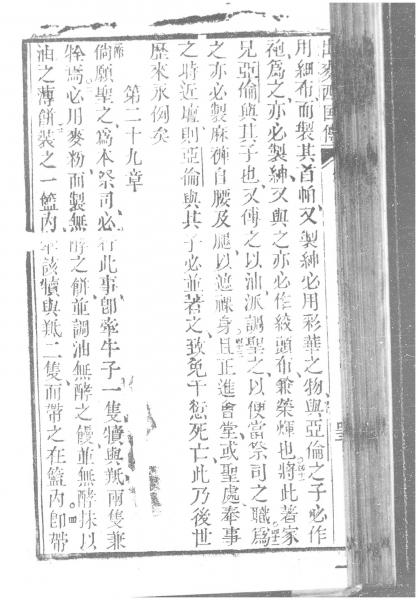 出麥西国傳
用細布而製其首帕又製紳必用彩華之物與亞倫之子必作
袍為之亦必製紳又與之亦必作綾頭布兼榮煇也將此著家
兄亞倫與其子也又傅之以油派調聖之以便當祭司之職為
之亦必製麻褲自腰及腿以遮裸身且正進會堂或聖處奉事
之時近壇則亞倫與其子必並著之致免干愆死亡此乃後世
歷來永例矣
第二十九章
倘願聖之為本祭司必行此事卽牽牛子一隻犢與羝兩隻兼
牷焉必用麥粉而製無酵之餅並調油無酵之饅並無酵抹以
油之薄餅裝之一籃內該犢與羝二隻而帶之在籃內卽帶